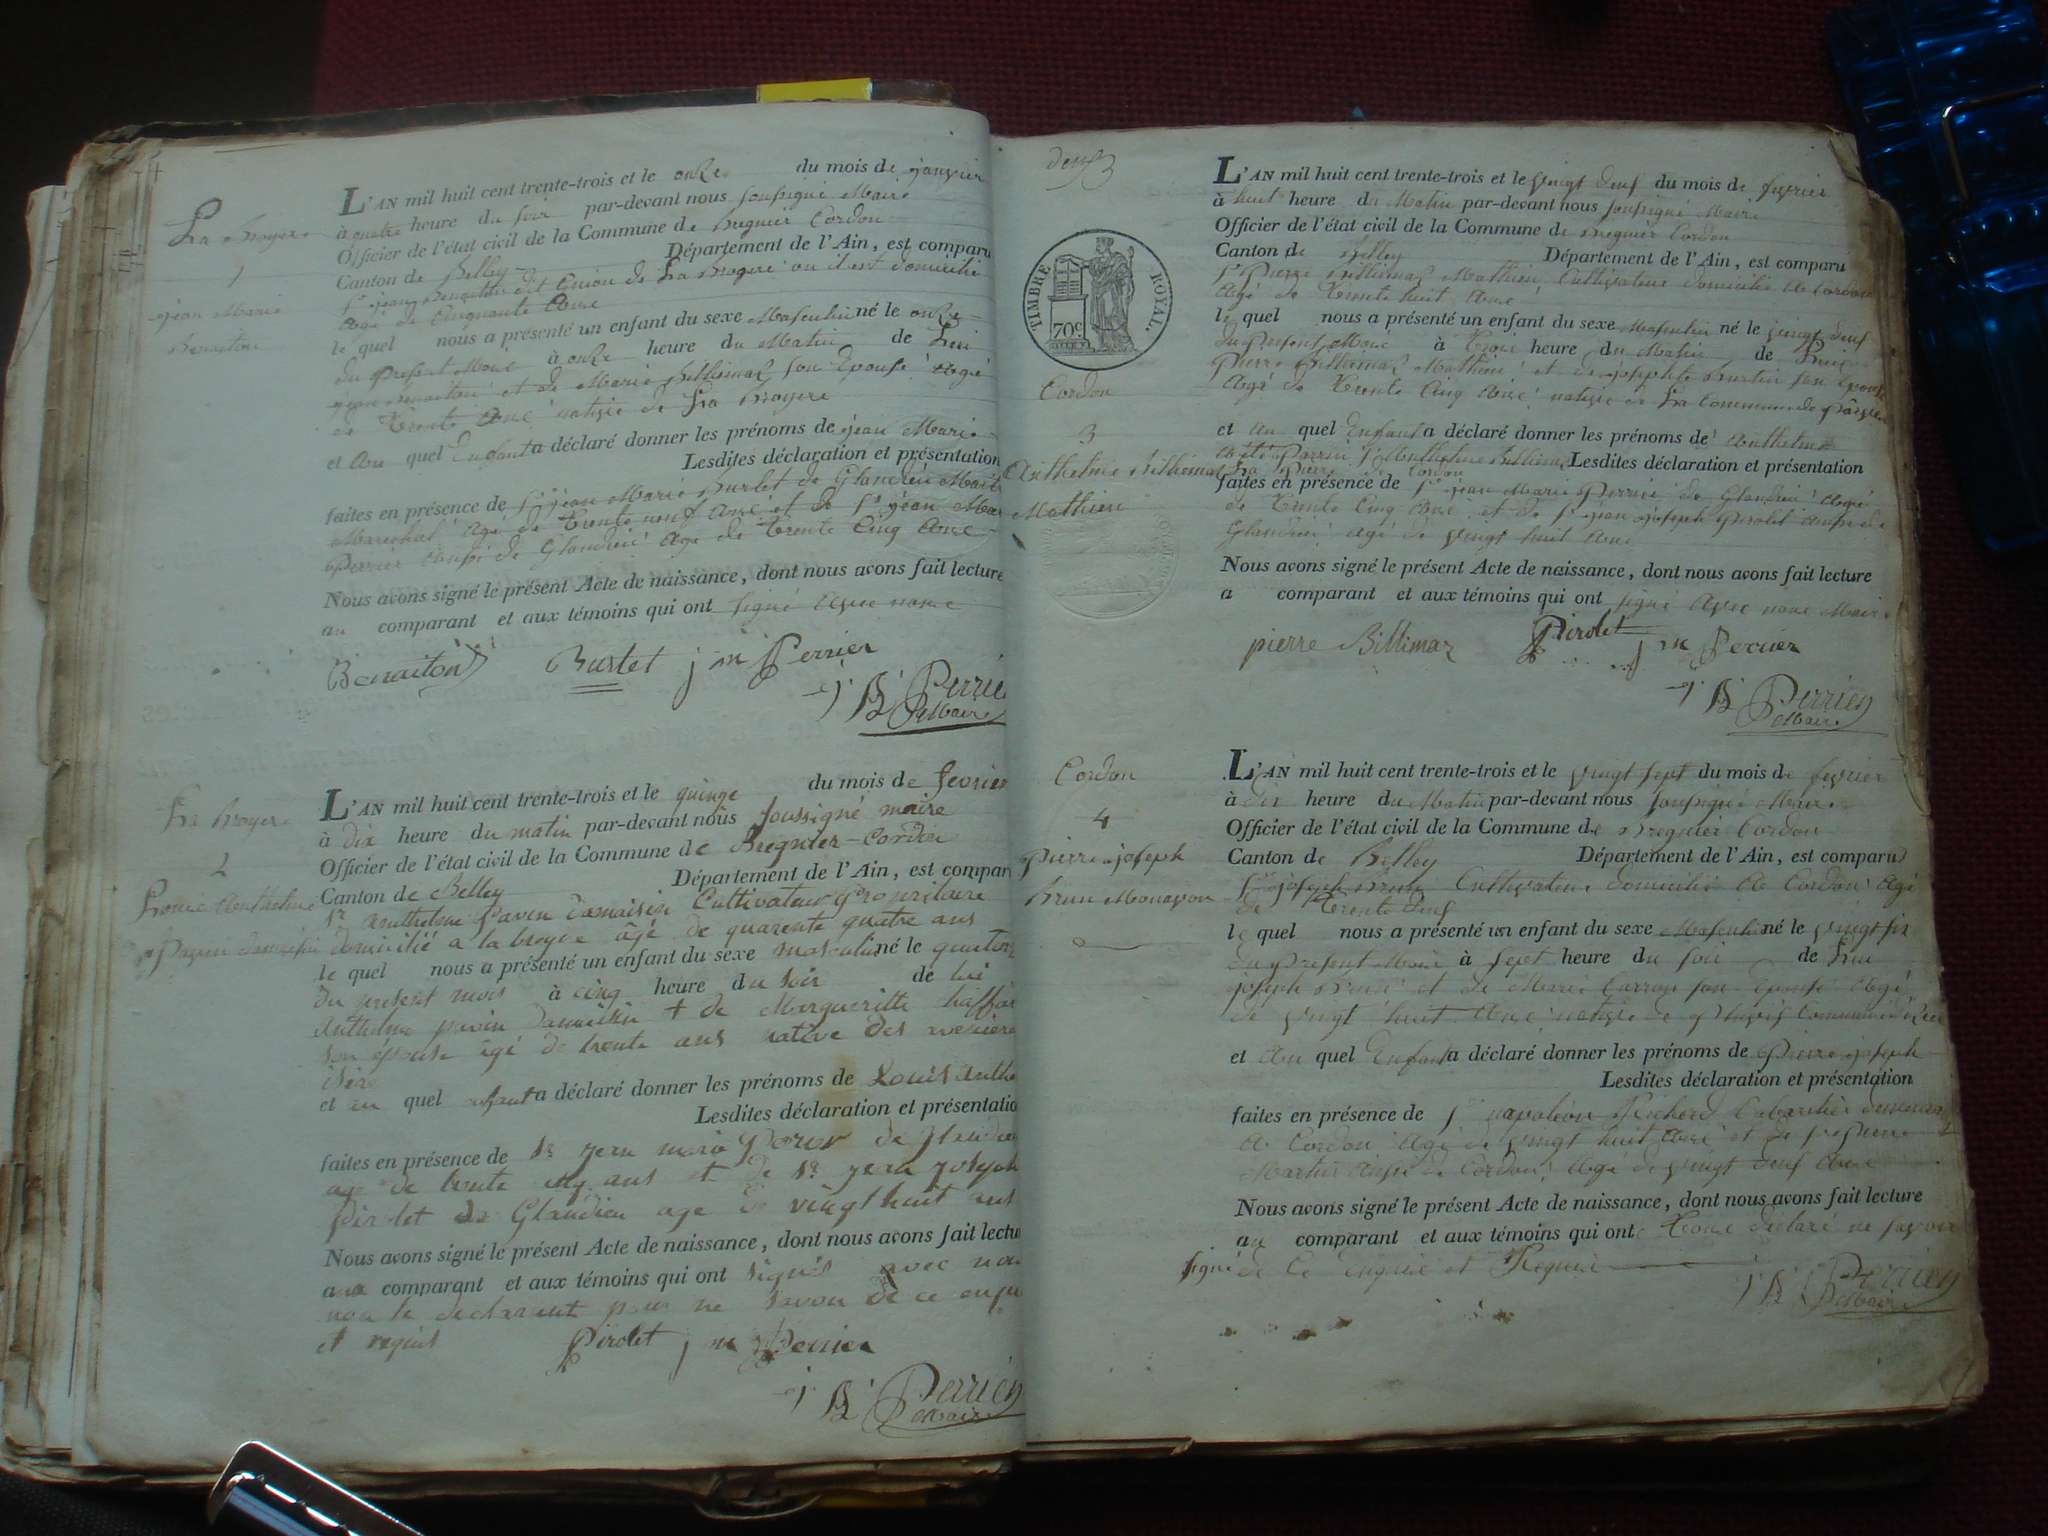 La Broyere
1
jean Marie
Benaiton
L'AN mil huit cent trente-trois et le onze du mois de janvier
à quatre heure du soir par-devant nous soussigné Maire
Officier de l'état civil de la Commune de Bregnier Cordon
Canton de Belley Département de l'Ain, est comparu
Sr jean Benaiton dit de La Broyere ou il est domicilié
agé de cinquante ans
le quel nous a présenté un enfant du sexe Masculin né le onze
du present Mois à onze heure du Matin de Lui
jean Benaiton et de Marie Billiemaz son Epouse agé
de Trente ans native de La Broyere
et au quel Enfant a déclaré donner les prénoms de jean Marie
Lesdites déclaration et présentation
faites en présence de Sr jean Marie Burlet de Glandieu
Marechal agé de Trente neuf ans et de Sr jean Marie
Perrier aussi de Glandieu agé de Trente Cinq ans
Nous avons signé le présent Acte de naissance, dont nous avons fait lecture
au comparant et aux témoins qui ont signé avec nous
Benaiton Burlet j m Perrier
J B Perrier
Maire
La Broyere
2
Louis Anthelme
Pavin Damaisin
L'AN mil huit cent trente-trois et le quinze du mois de fevrier
à dix heure du matin par-devant nous soussigné maire
Officier de l'état civil de la Commune de Bregnier-Cordon
Canton de Belley Département de l'Ain, est comparu
Sr Anthelme pavin damaisin Cultivateur Propriétaire
domicilié a la broyere âgé de quarente quatre ans
le quel nous a présenté un enfant du sexe masculin né le quatorze
du present mois à cinq heure du soir de lui
Anthelme pavin Damaisin et de Margueritte
son épouse âgé de trente ans native des avenieres
isère
et au quel enfant a déclaré donner les prénoms de Louis Anthe
Lesdites déclaration et présentation
faites en présence de Sr jean marie Perier de glandieu
age de trente cinq ans et de Sr jean joseph
Pirolet de Glandieu age de vingt huit ans
Nous avons signé le présent Acte de naissance, dont nous avons fait lecture
aux comparant et aux témoins qui ont signés avec nous
non le declarant pour ne savoir de ce enquis
et requis Pirolet j m Perrier
J B Perrier
Maire
deux
TIMBRE ROYAL.
70c
Cordon
3
Anthelme Billiemaz
Mathieu
L'AN mil huit cent trente-trois et le vingt deux du mois de fevrier
à huit heure du Matin par-devant nous soussigné Maire
Officier de l'état civil de la Commune de Bregnier Cordon
Canton de Belley Département de l'Ain, est comparu
Sr Pierre Billiemaz Mathieu Cultivateur domicilié de Cordon
agé de Trente huit ans
le quel nous a présenté un enfant du sexe Masculin né le vingt deux
du present Mois à Trois heure du Matin de Lui
Pierre Billiemaz Mathieu et de josephte Martin son Epouse
agé de Trente Cinq ans native de La Commune de
et au quel Enfant a déclaré donner les prénoms de Anthelme
Lesdites déclaration et présentation
faites en présence de Sr jean Marie Perrier de Glandieu agé
de Trente Cinq ans et de Sr jean joseph Pirolet aussi de
Glandieu agé de vingt huit ans
Nous avons signé le présent Acte de naissance, dont nous avons fait lecture
a comparant et aux témoins qui ont signé avec nous Maire
pierre Billimaz Pirolet j m Perrier
J B Perrier
Maire
Cordon
4
Pierre joseph
Brun Monavon
L'AN mil huit cent trente-trois et le vingt sept du mois de fevrier
à dix heure du Matin par-devant nous soussigné Maire
Officier de l'état civil de la Commune de Bregnier Cordon
Canton de Belley Département de l'Ain, est comparu
Sr joseph Brun Cultivateur domicilié de Cordon agé
de Trente deux
le quel nous a présenté un enfant du sexe Masculin né le vingt six
du present Mois à sept heure du soir de Lui
joseph Brun et de Marie Carron son Epouse agé
de vingt huit ans native de Commune
et au quel Enfant a déclaré donner les prénoms de Pierre joseph
Lesdites déclaration et présentation
faites en présence de Sr napoléon Richerd Cabaretier demeurant
a Cordon agé de vingt huit ans et de Sr Pierre
Martin aussi de Cordon agé de vingt deux ans
Nous avons signé le présent Acte de naissance, dont nous avons fait lecture
au comparant et aux témoins qui ont Tous déclaré ne savoir
signé de Ce Enquis et Requis
J B Perrier
Maire